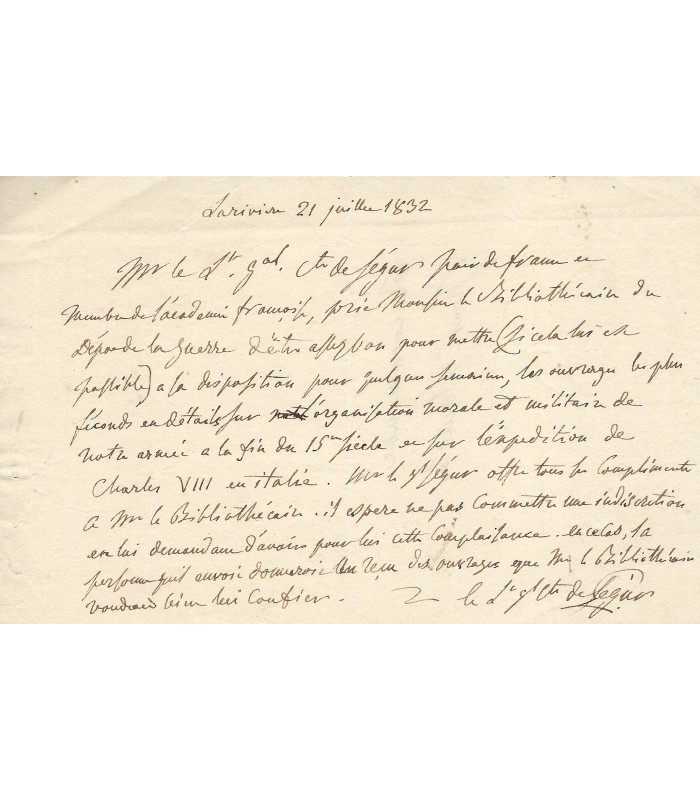 Larivière 21 juillet 1832
Mr le Lt. gal. Cte de Ségur pair de france et
membre de l'académie françoise, prie Monsieur le Bibliothécaire du
Dépot de la Guerre d'être assez bon pour mettre (si cela lui est
possible) a sa disposition pour quelques semaines, les ouvrages les plus
féconds en détails sur l'organisation morale et militaire de
notre armée a la fin du 15me siècle et sur l'expédition de
Charles VIII en italie. Mr le gl Ségur offre tous ses Compliments
a Mr le Bibliothécaire. il espere ne pas Commettre une indiscretion
en lui demandant d'avoir pour lui cette Complaisance. en ce cas, la
personne qu'il envoie donneroit un reçu des ouvrages que Mr le Bibliothécaire
voudroit bien lui Confier.
le Lt gl Cte de Ségur